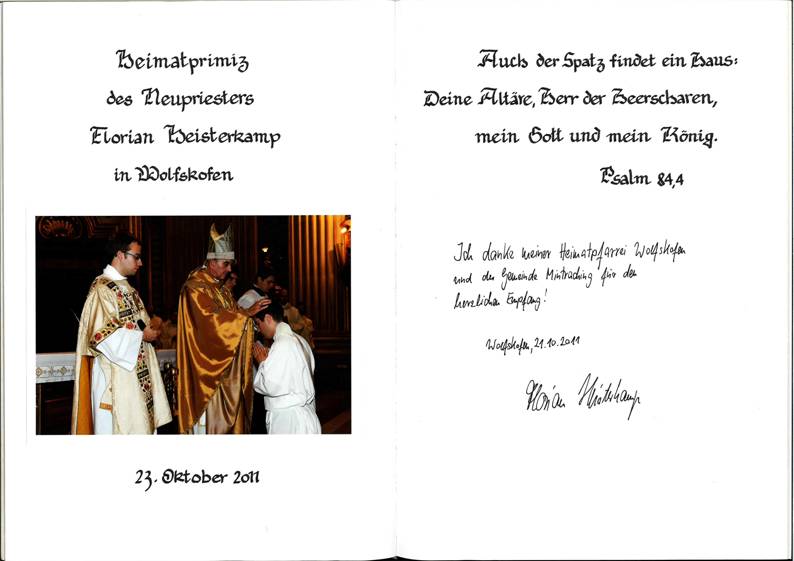 Heimatprimiz
des Neupriesters
Florian Heisterkamp
in Wolfskofen
23. Oktober 2011
Auch der Spatz findet ein Haus:
Deine Altäre, Herr der Heerscharen,
mein Gott und mein König.
Psalm 84,4
Ich danke meiner Heimatpfarrei Wolfskofen
und der Gemeinde Mintraching für den
herzlichen Empfang!
Wolfskofen, 21.10.2011
Florian Heisterkamp